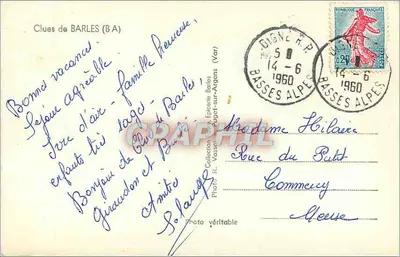 Clues de BARLES (B A)
Bonnes vacances.
Séjour agréable
air - famille heureuse,
enfants très sages.
Bonjour de Bars de Barles-
Giraudon et
Amitiés
Solange
Photo R. Vassou Puget-sur-Argens (Var)
Collection Epicerie Barles
Photo véritable
DIGNE R.P.
5
14 - 6
1960
BASSES ALPES
DIGNE R.P.
14 - 6
1960
BASSES ALPES
0,20
Madame Hilaire
Rue du Petit
Commercy
Meuse
CARTE GRAPHIL